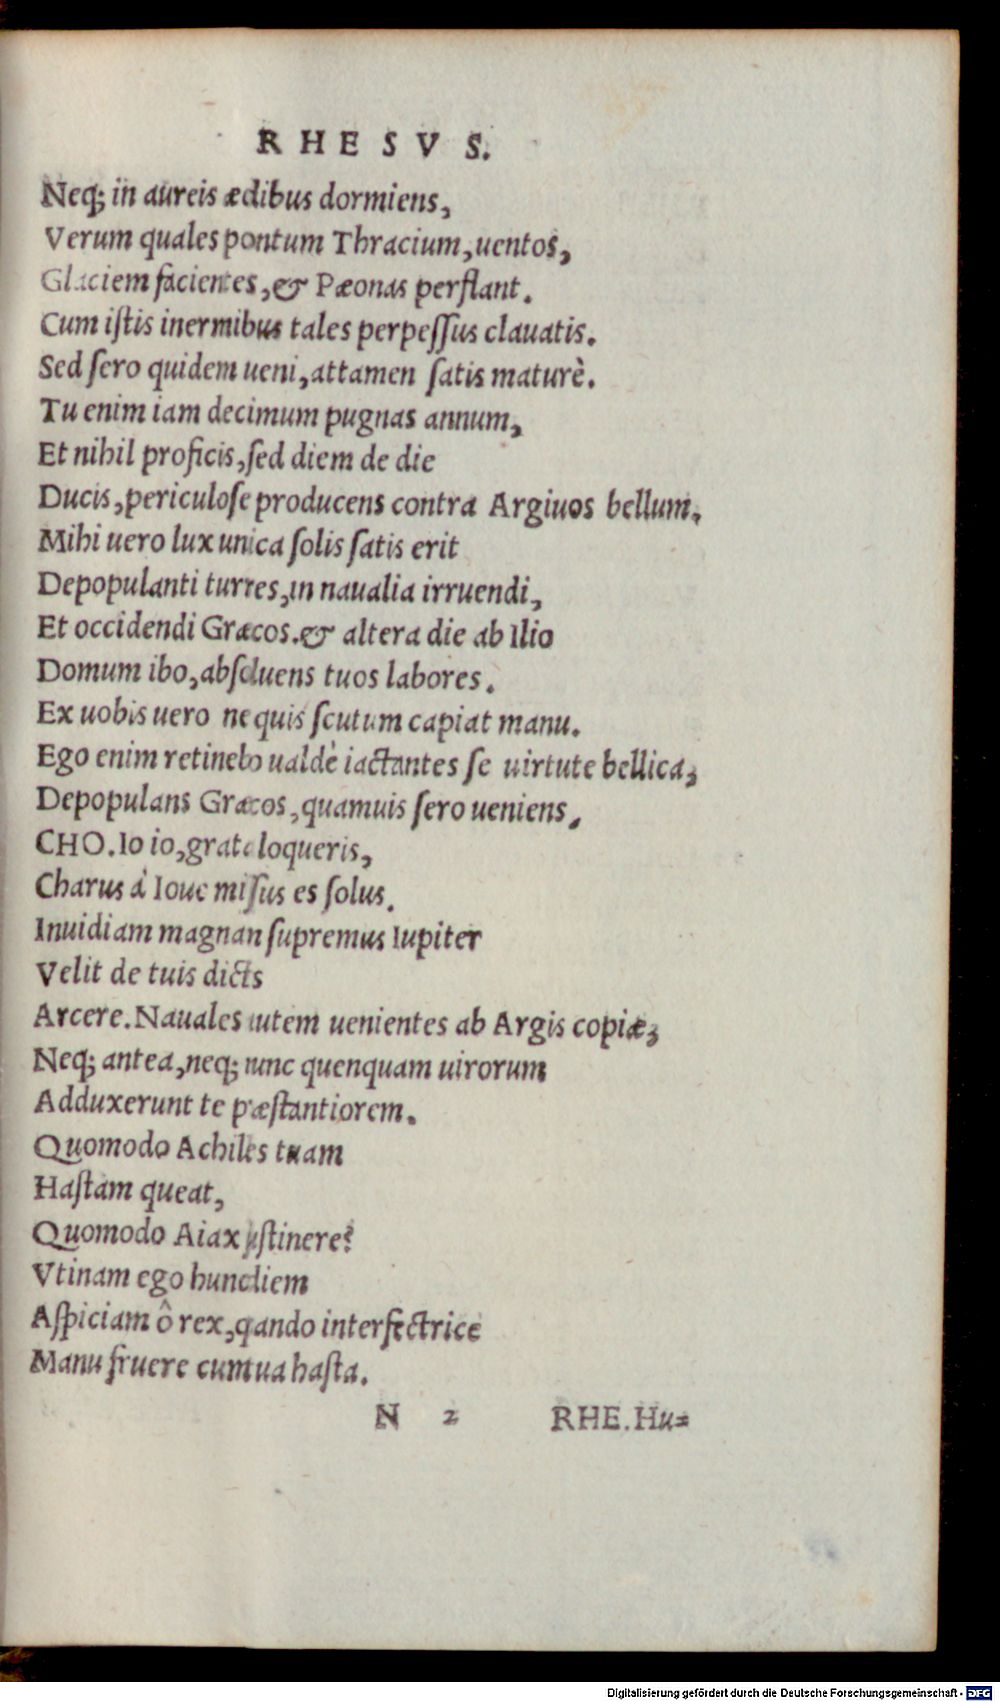 RHESVS.
Neq; in aureis ædibus dormiens,
Verum quales pontum Thracium, uentos,
Glaciem facientes, & Pæonas perflant.
Cum istis inermibus tales perpessus clauatis.
Sed sero quidem ueni, attamen satis maturè.
Tu enim iam decimum pugnas annum,
Et nihil proficis, sed diem de die
Ducis, periculose producens contra Argiuos bellum.
Mihi uero lux unica solis satis erit
Depopulanti turres, in naualia irruendi,
Et occidendi Græcos. & altera die ab Ilio
Domum ibo, absoluens tuos labores.
Ex uobis uero ne quis scutum capiat manu.
Ego enim retinebo ualdè iactantes se uirtute bellica,
Depopulans Græcos, quamuis sero ueniens.
CHO. Io io, grata loqueris,
Charus à Ioue missus es solus.
Inuidiam magnan supremus Iupiter
Velit de tuis dicts
Arcere. Nauales autem uenientes ab Argis copiæ,
Neq; antea, neq; nunc quenquam uirorum
Adduxerunt te præstantiorem.
Quomodo Achilles tuam
Hastam queat,
Quomodo Aiax sustinere?
Vtinam ego hunc diem
Aspiciam ô rex, qando interfectrice
Manu fruere cum tua hasta.
N 2 RHE. Hu=
Digitalisierung gefördert durch die Deutsche Forschungsgemeinschaft - DFG